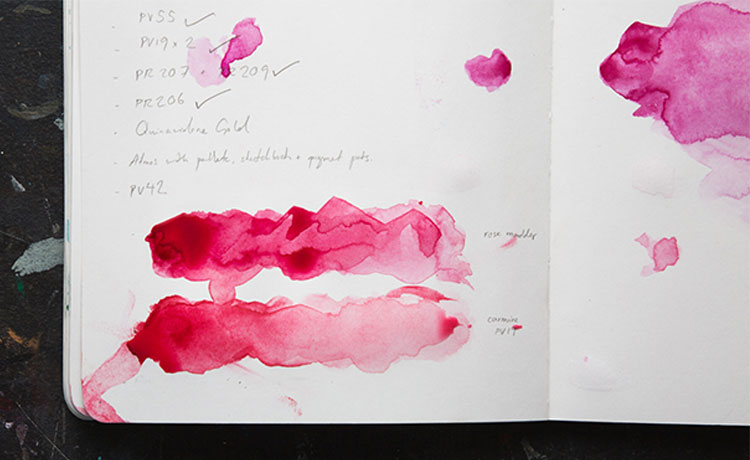 - PV55 ✓
- PV19 x 2 ✓
- PR207 + PR209 ✓
- PR206 ✓
- Quinacridone Gold
- with pallete, sketchbook + pigment pots.
- PV42
rose madder
carmine
PV19